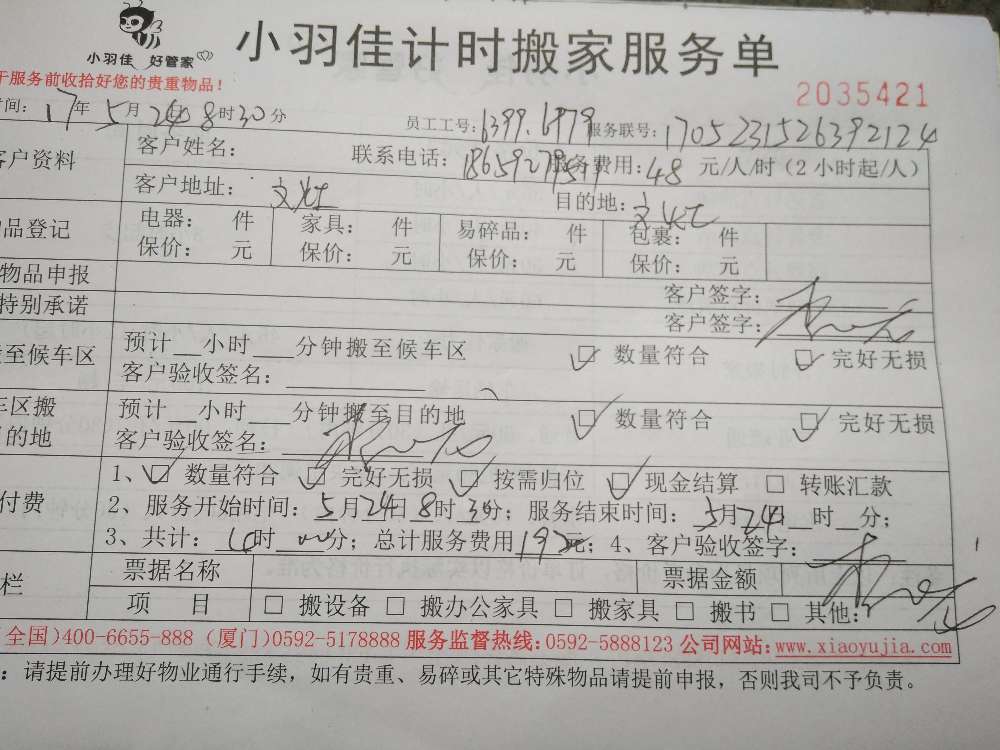 小羽佳 好管家
小羽佳计时搬家服务单
于服务前收拾好您的贵重物品！
2035421
时间：17年5月24日8时30分 员工工号：6399.6979 服务联号：1705231526392124
客户资料 客户姓名： 联系电话： 服务费用：48 元/人/时（2小时起/人）
客户地址：文灶 目的地：文灶
品登记 电器： 件 家具： 件 易碎品： 件 包裹： 件
保价： 元 保价： 元 保价： 元 保价： 元
物品申报 客户签字：
特别承诺 客户签字：
至候车区 预计__小时___分钟搬至候车区 ☑ 数量符合 ☑ 完好无损
客户验收签名：
车区搬 预计__小时___分钟搬至目的地 ☑ 数量符合 ☑ 完好无损
的地 客户验收签名：
付费 1、☑ 数量符合 ☑ 完好无损 ☑ 按需归位 ☑ 现金结算 □ 转账汇款
2、服务开始时间：5月24日8时30分；服务结束时间：5月24日 时__分；
3、共计： 时 分；总计服务费用192元；4、客户验收签字：
栏 票据名称 票据金额
项 目 □ 搬设备 □ 搬办公家具 □ 搬家具 □ 搬书 □ 其他：
全国)400-6655-888（厦门)0592-5178888 服务监督热线:0592-5888123 公司网站:www.xiaoyujia.com
：请提前办理好物业通行手续，如有贵重、易碎或其它特殊物品请提前申报，否则我司不予负责。